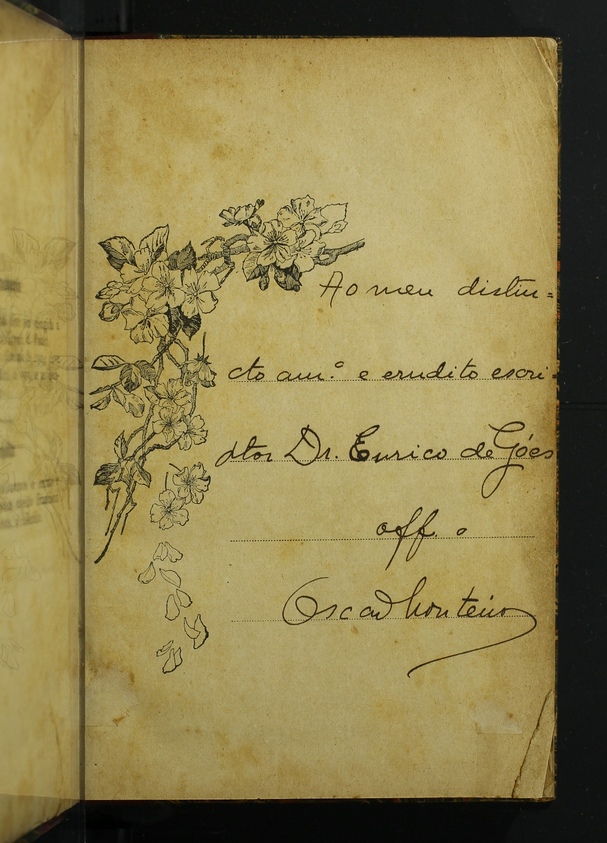 Ao meu distin=
cto am.º e erudito escri-
ptor Dr. Eurico de Góes
off. o
Oscar Monteiro